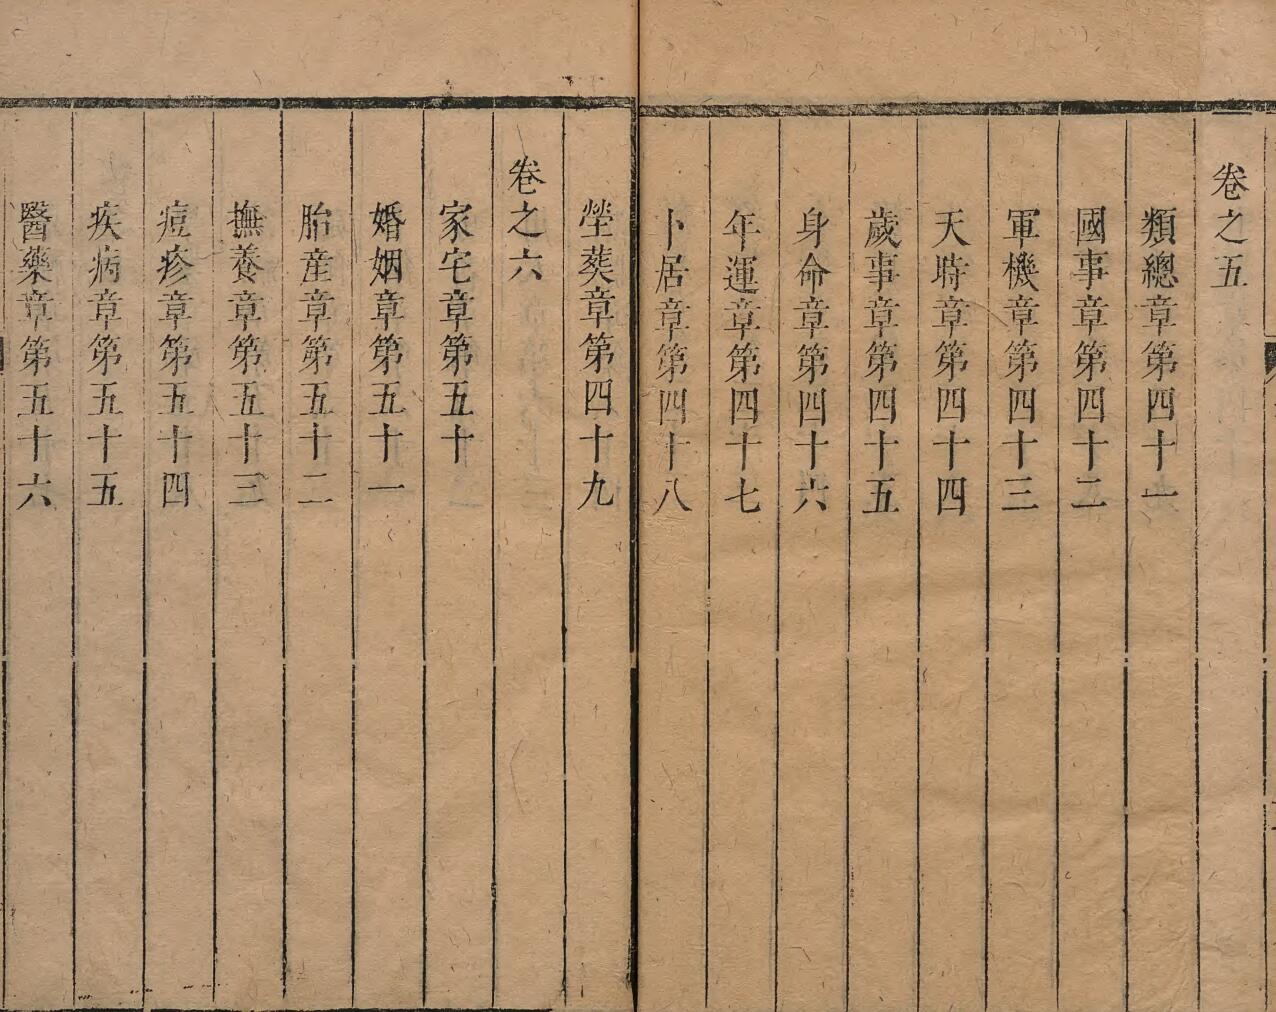 卷之五
類總章第四十一
國事章第四十二
軍機章第四十三
天時章第四十四
歲事章第四十五
身命章第四十六
年運章第四十七
卜居章第四十八
塋葬章第四十九
卷之六
家宅章第五十
婚姻章第五十一
胎產章第五十二
撫養章第五十三
痘疹章第五十四
疾病章第五十五
醫藥章第五十六